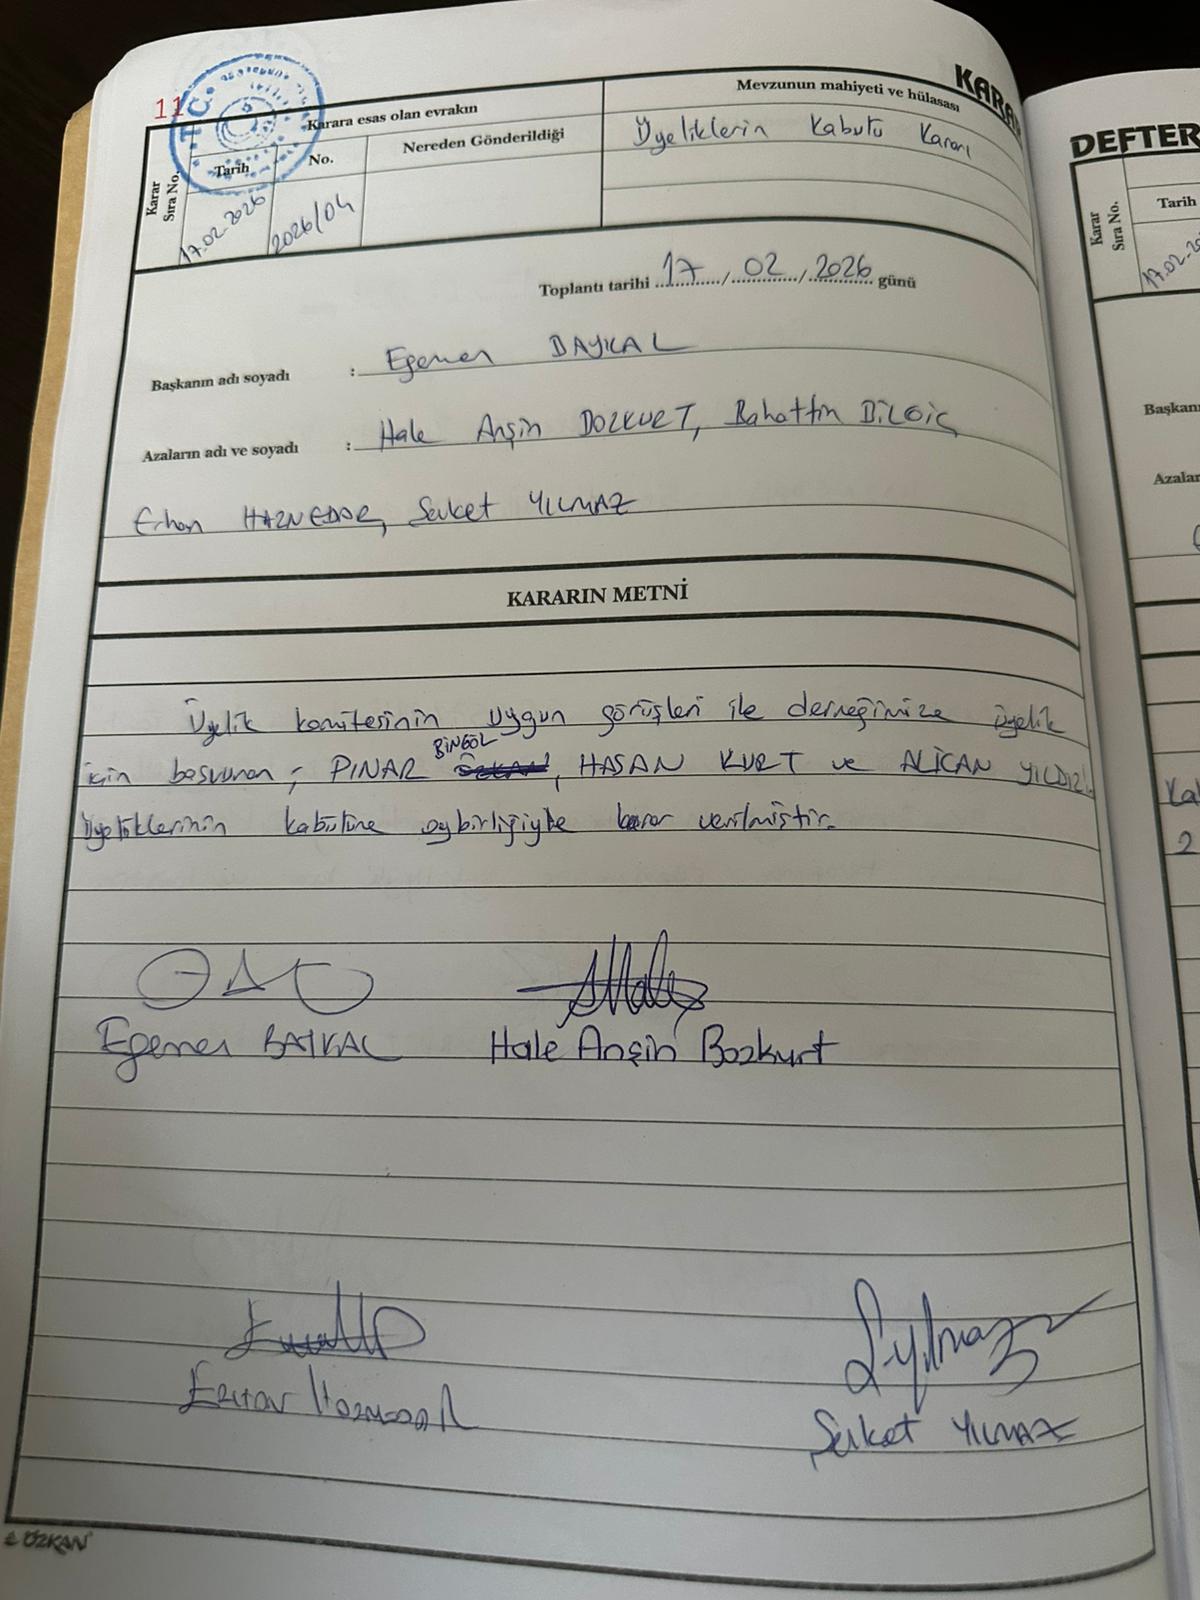 11
T.C.
KARA
Karara esas olan evrakın
Mevzunun mahiyeti ve hülasası
Karar Sıra No.
Tarih
No.
Nereden Gönderildiği
Üyeliklerin Kabulü Kararı
17.02.2026
2026/04
Toplantı tarihi 17 / 02 / 2026 günü
Başkanın adı soyadı : Egemen BAYKAL
Azaların adı ve soyadı : Hale Anşin BOZKURT, Bahattin BİLGİÇ,
Erhan HAZNEDAR, Şevket YILMAZ
KARARIN METNİ
Üyelik komitesinin uygun görüşleri ile derneğimize üyelik
BİNGÖL
için başvuran ; PINAR ÖZKAN, HASAN KURT ve ALİCAN YILDIZ
Üyeliklerinin kabulüne oybirliğiyle karar verilmiştir.
Egemen BAYKAL
Hale Anşin Bozkurt
S.Yılmaz
Erhan Haznedar
Şevket YILMAZ
ÖZKAN
DEFTER
Karar Sıra No.
Tarih
17.02.20
Başkan
Azalar
Ka
2